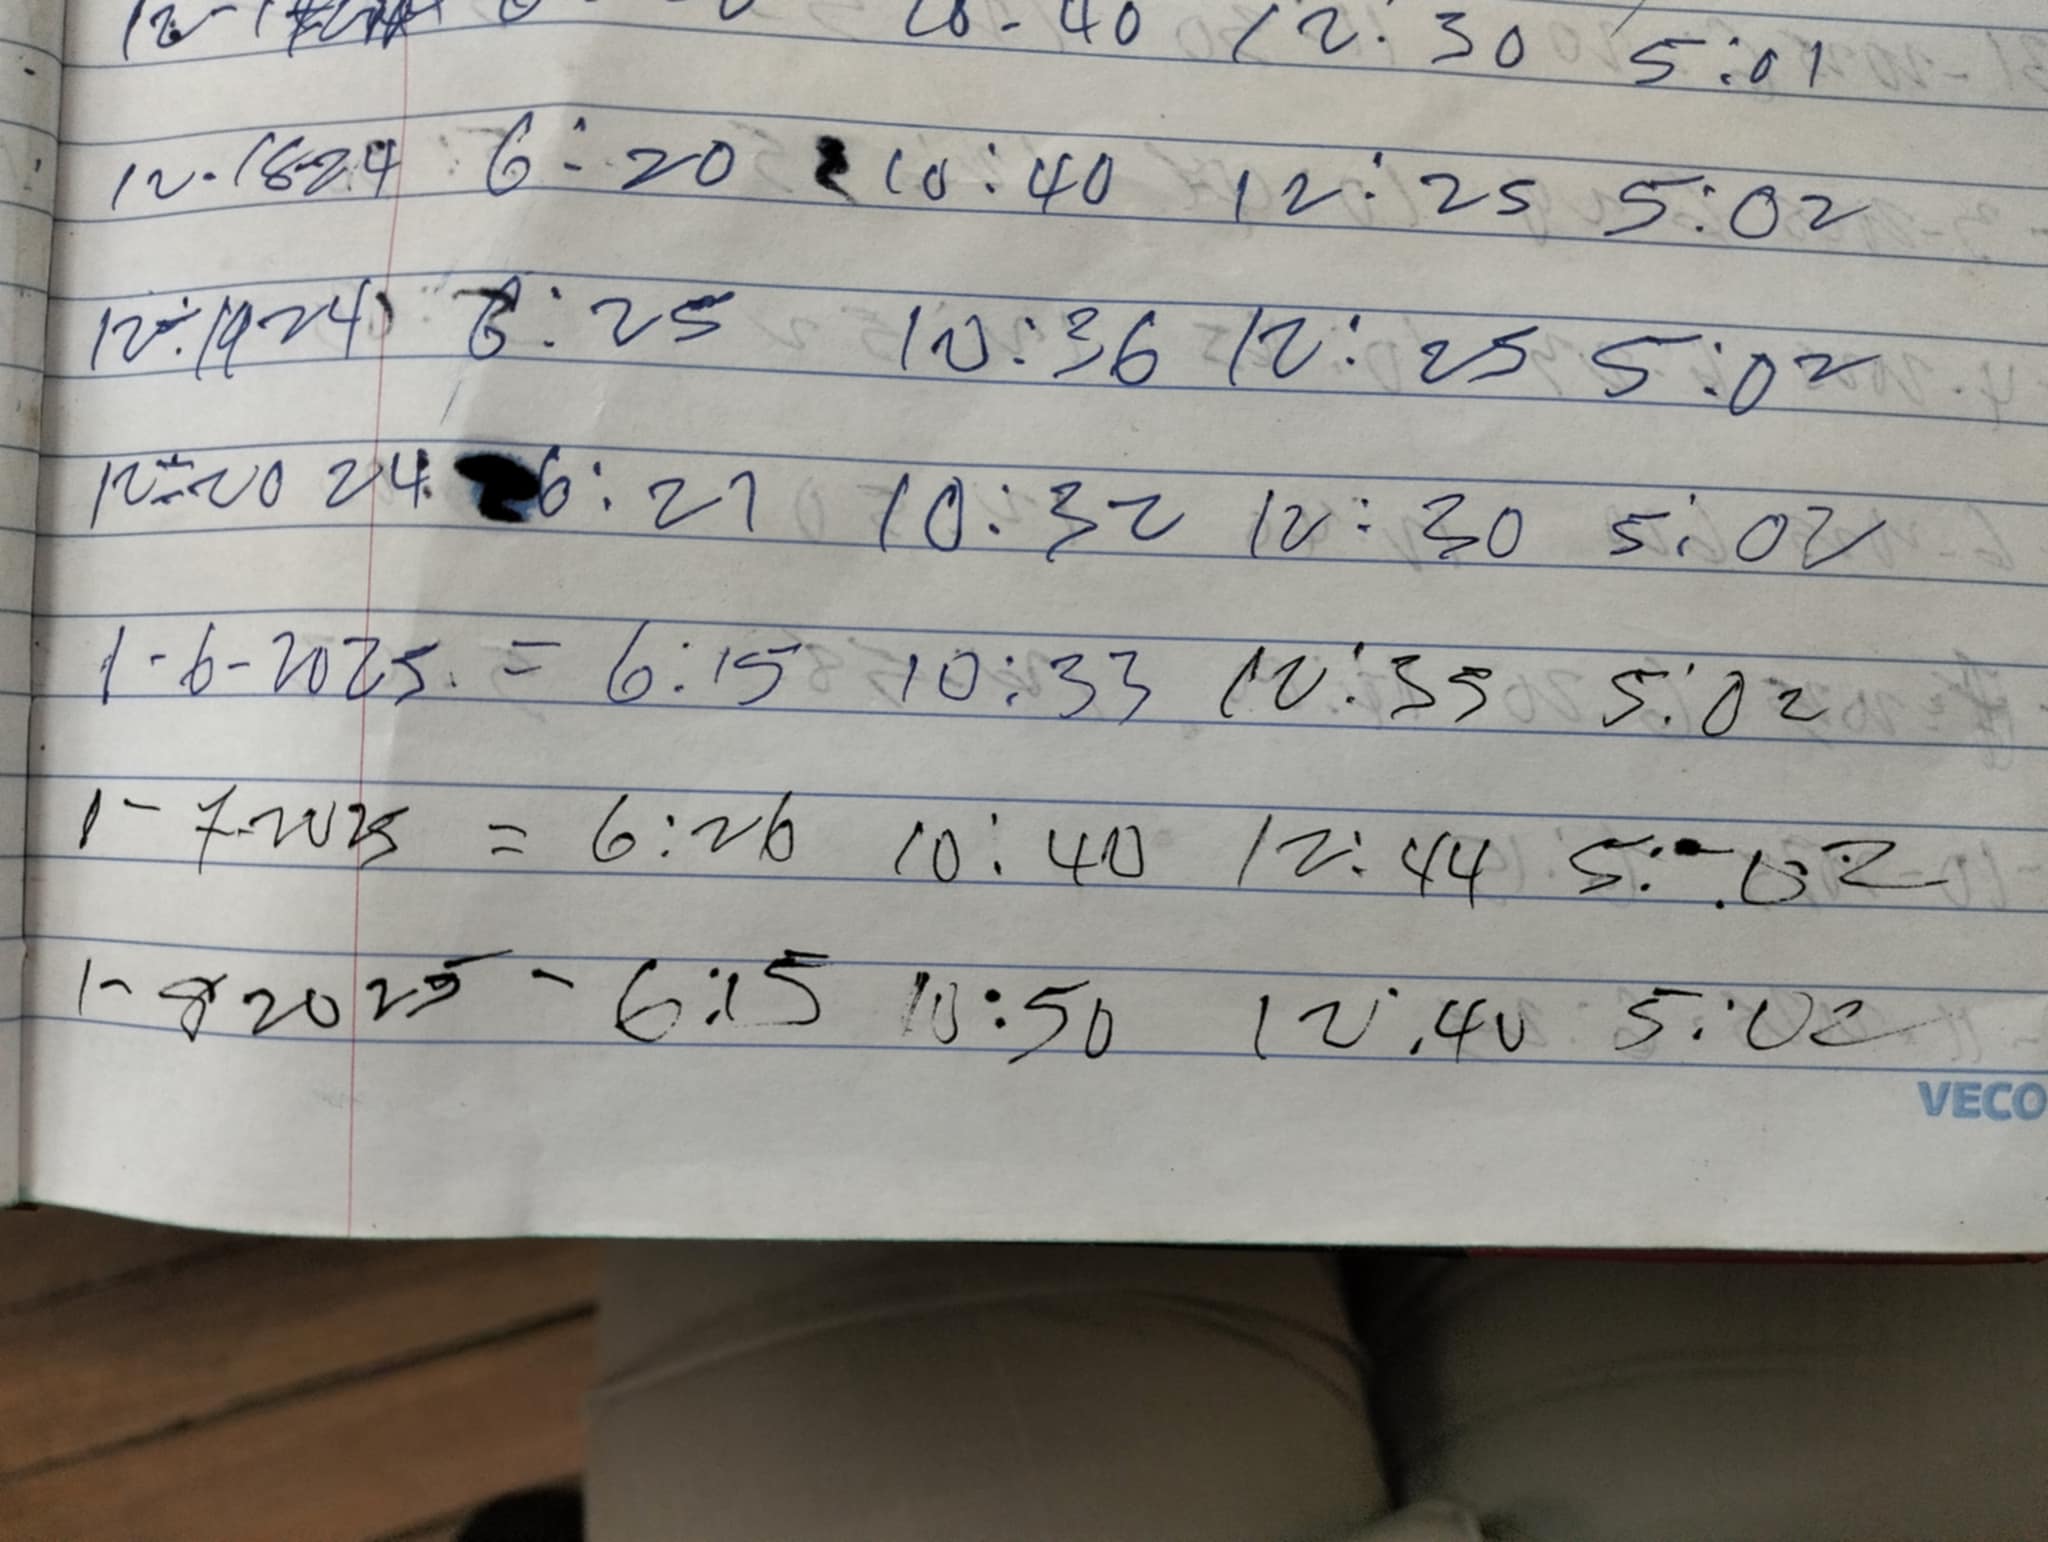 10-40 12:30 5:01
12-18-24 6:20 10:40 12:25 5:02
12-19 24 6:25 10:36 12:25 5:02
12-20 24 6:27 10:32 12:30 5:02
1-6-2025 = 6:15 10:33 12:35 5:02
1-7-2025 = 6:26 10:40 12:44 5:02
1-8 2025 - 6:15 10:50 12:40 5:02
VECO